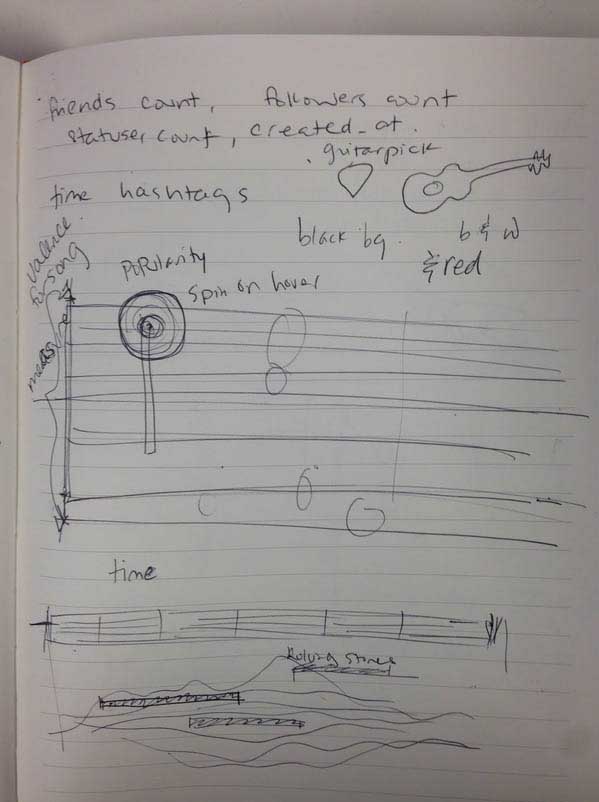 friends count, followers count
statuser count, created_at.
guitarpick
time hashtags
black bg. b & w
& red
valence
for song
popularity
spin on hover
measure
time
Rolling Stones